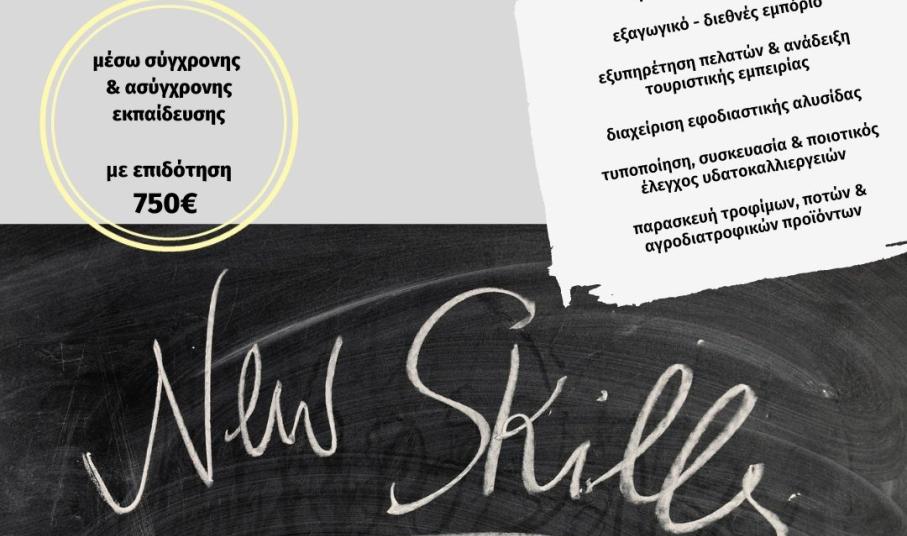 μέσω σύγχρονης
& ασύγχρονης
εκπαίδευσης
με επιδότηση
750€
εξαγωγικό - διεθνές εμπόριο
εξυπηρέτηση πελατών & ανάδειξη
τουριστικής εμπειρίας
διαχείριση εφοδιαστικής αλυσίδας
τυποποίηση, συσκευασία & ποιοτικός
έλεγχος υδατοκαλλιεργειών
παρασκευή τροφίμων, ποτών &
αγροδιατροφικών προϊόντων
New Skills